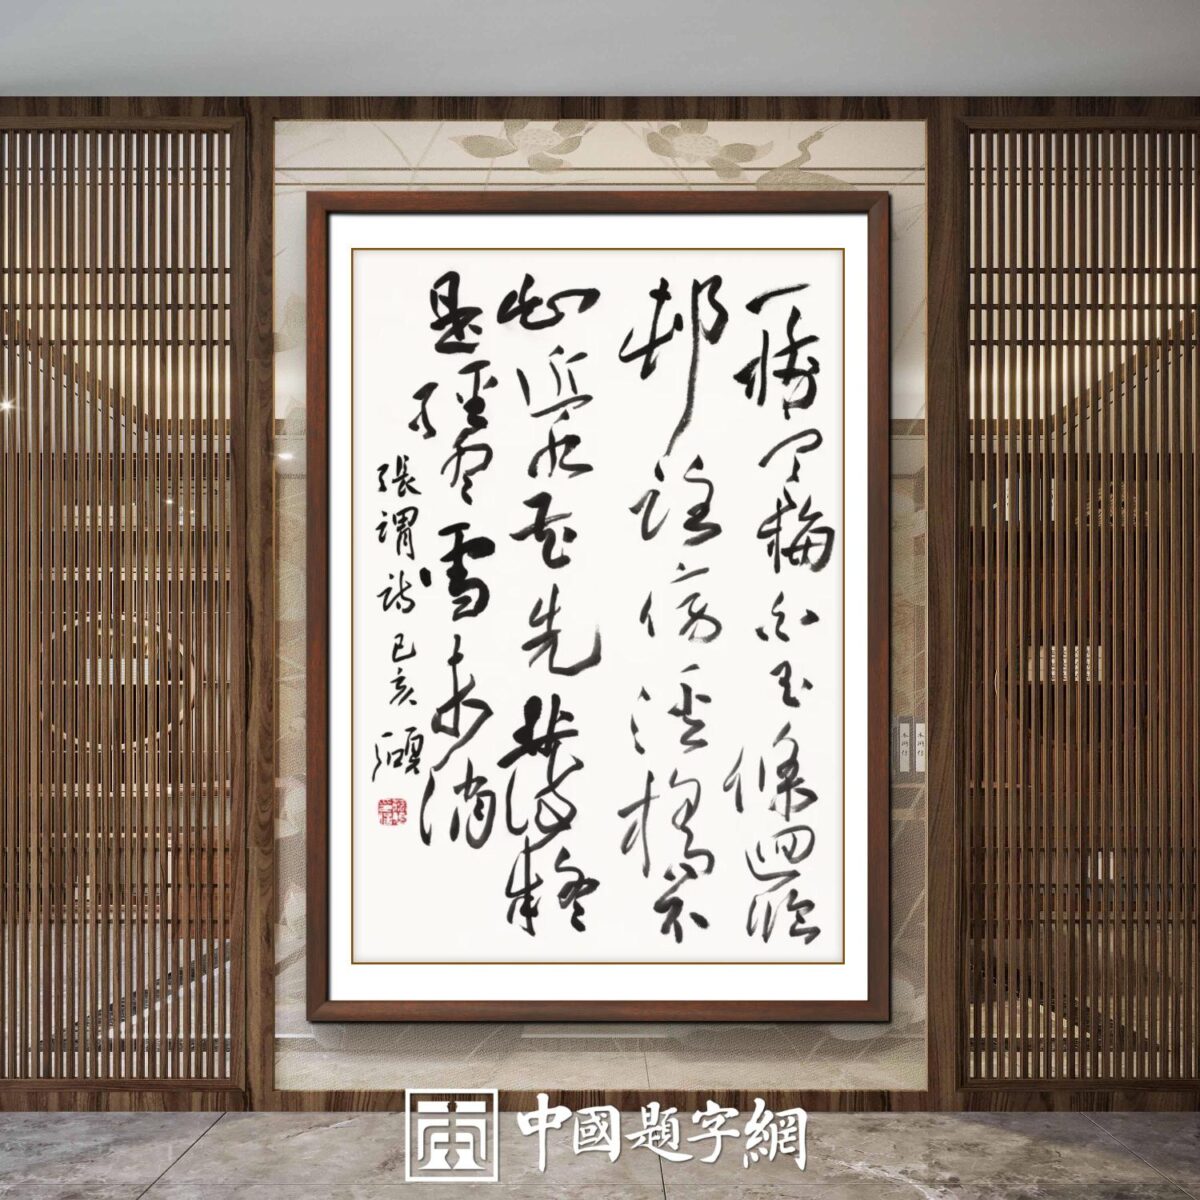 一樹寒梅白玉條迴臨
邨路傍溪橋不
知近水花先發疑
是經冬雪未消
張謂詩 己亥
中國題字網